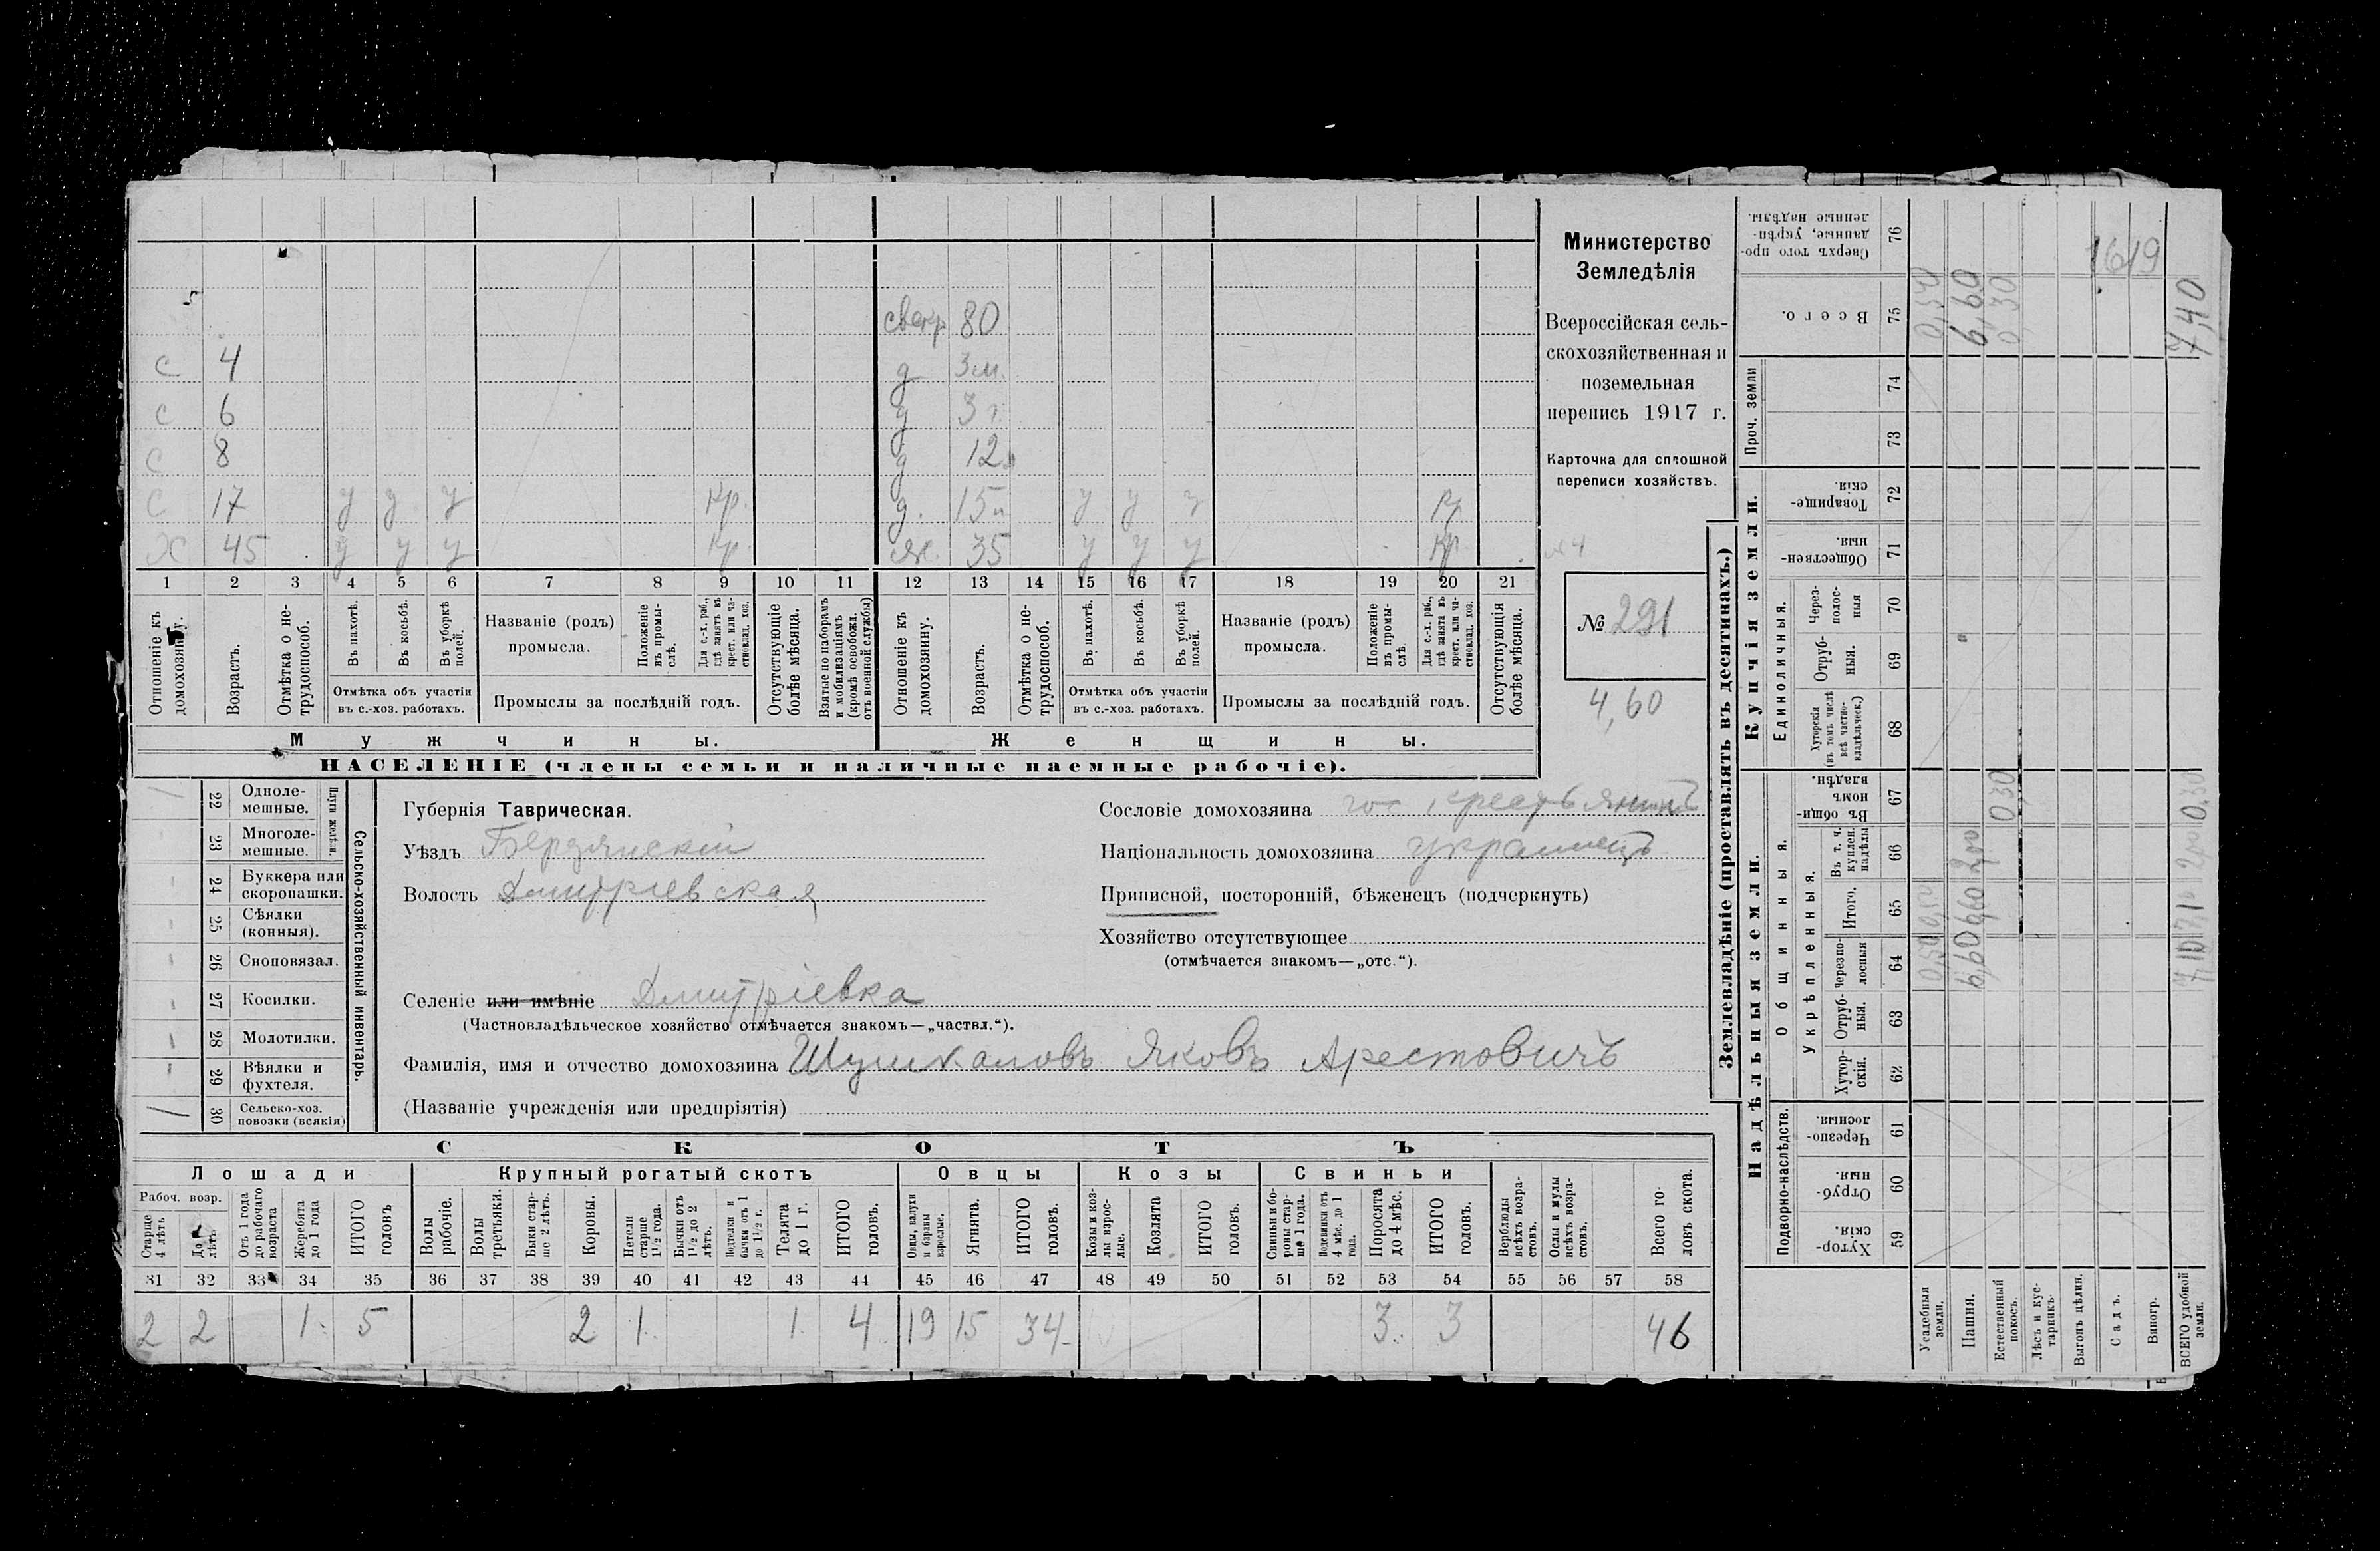 свекр 80
с 4 д 3 м.
с 6 д 3 г.
с 8 д 12
с 17 у у у кр. д. 15 у у у кр
х 45 у у у кр. ж. 35 у у у кр.
1 2 3 4 5 6 7 8 9 10 11 12 13 14 15 16 17 18 19 20 21
Отношеніе къ домохозяину.
Возрастъ.
Отмѣтка о нетрудоспособ.
Въ пахотѣ.
Въ косьбѣ.
Въ уборкѣ полей.
Отмѣтка объ участіи
въ с.-хоз. работахъ.
Названіе (родъ)
промысла.
Положеніе въ промыслѣ.
Для с.-х. раб., гдѣ занятъ въ крест. или частновлад. хоз.
Промыслы за послѣдній годъ.
Отсутствующіе болѣе мѣсяца.
Взятые по наборамъ и мобилизаціямъ (кромѣ освобожд. отъ военной службы)
Отношеніе къ домохозяину.
Возрастъ.
Отмѣтка о нетрудоспособ.
Въ пахотѣ.
Въ косьбѣ.
Въ уборкѣ полей.
Отмѣтка объ участіи
въ с.-хоз. работахъ.
Названіе (родъ)
промысла.
Положеніе въ промыслѣ.
Для с.-х. раб., гдѣ занята въ крест. или частновлад. хоз.
Промыслы за послѣдній годъ.
Отсутствующія болѣе мѣсяца.
Мужчины. Женщины.
НАСЕЛЕНІЕ (члены семьи и наличные наемные рабочіе).
Министерство
Земледѣлія
Всероссійская сель-
скохозяйственная и
поземельная
перепись 1917 г.
Карточка для сплошной
переписи хозяйствъ.
№ 291
4,60
Сельско-хозяйственный инвентарь.
Плуги желѣзн.
/ 22 Одноле-
мешные.
- 23 Многоле-
мешные.
- 24 Буккера или
скоропашки.
- 25 Сѣялки
(конныя).
- 26 Сноповязал.
- 27 Косилки.
- 28 Молотилки.
- 29 Вѣялки и
фухтеля.
/ 30 Сельско-хоз.
повозки (всякія)
Губернія Таврическая.
Уѣздъ Бердянскій
Волость Дмитріевская
Сословіе домохозяина гос. крестьянинъ
Національность домохозяина украинецъ
Приписной, посторонній, бѣженецъ (подчеркнуть)
Хозяйство отсутствующее
(отмѣчается знакомъ—„отс.“).
Селеніе или имѣніе Дмитріевка
(Частновладѣльческое хозяйство отмѣчается знакомъ—„частвл.“).
Фамилія, имя и отчество домохозяина Шушкановъ Яковъ Арестовичъ
(Названіе учрежденія или предпріятія)
СКОТЪ
Лошади Крупный рогатый скотъ Овцы Козы Свиньи
Рабоч. возр.
Старше 4 лѣтъ
До 4 лѣтъ
Отъ 1 года до рабочаго возраста
Жеребята до 1 года
ИТОГО головъ
Волы рабочіе.
Волы третьяки.
Быки старше 2 лѣтъ.
Коровы.
Нетели старше 1½ года.
Бычки отъ 1½ до 2 лѣтъ.
Подтелки и бычки отъ 1 до 1½ г.
Телята до 1 г.
ИТОГО головъ.
Овцы, валухи и бараны взрослые.
Ягнята.
ИТОГО головъ.
Козы и козлы взрослые.
Козлята
ИТОГО головъ.
Свиньи и боровы старше 1 года.
Подсвинки отъ 4 мѣс. до 1 года.
Поросята до 4 мѣс.
ИТОГО головъ.
Верблюды всѣхъ возрастовъ.
Ослы и мулы всѣхъ возрастовъ.
Всего головъ скота.
31 32 33 34 35 36 37 38 39 40 41 42 43 44 45 46 47 48 49 50 51 52 53 54 55 56 57 58
2 2 1 5 2 1 1 4 19 15 34 3 3 46
Землевладѣніе (проставлять въ десятинахъ.)
Надѣльныя земли. Купчія земли.
Подворно-наслѣдств.
Общинныя.
Укрѣпленныя.
Единоличныя.
Проч. земли
Хуторскія. 59
Отрубныя. 60
Черезполосныя. 61
Хуторскія. 62
Отрубныя. 63
Черезполосныя 64
Итого. 65
Въ т. ч. куплен. надѣлы 66
Въ общинномъ владѣн. 67
Хуторскія (въ томъ числѣ всѣ частновладѣльческ.) 68
Отрубныя. 69
Черезполосныя 70
Общественныя. 71
Товарищескія. 72
73
74
Всего. 75
Сверхъ того проданные, укрѣпленные надѣлы. 76
Усадебныя земли. 0,50 0,50 0,50
Пашня. 6,60 6,60 2,00 6,60
Естественный покосъ. 0 30 0 30
Лѣсъ и кустарникъ.
Выгонъ цѣлин.
Садъ.
Виногр.
ВСЕГО удобной земли. 7,10 7,10 2,00 0,30 7,40
1619